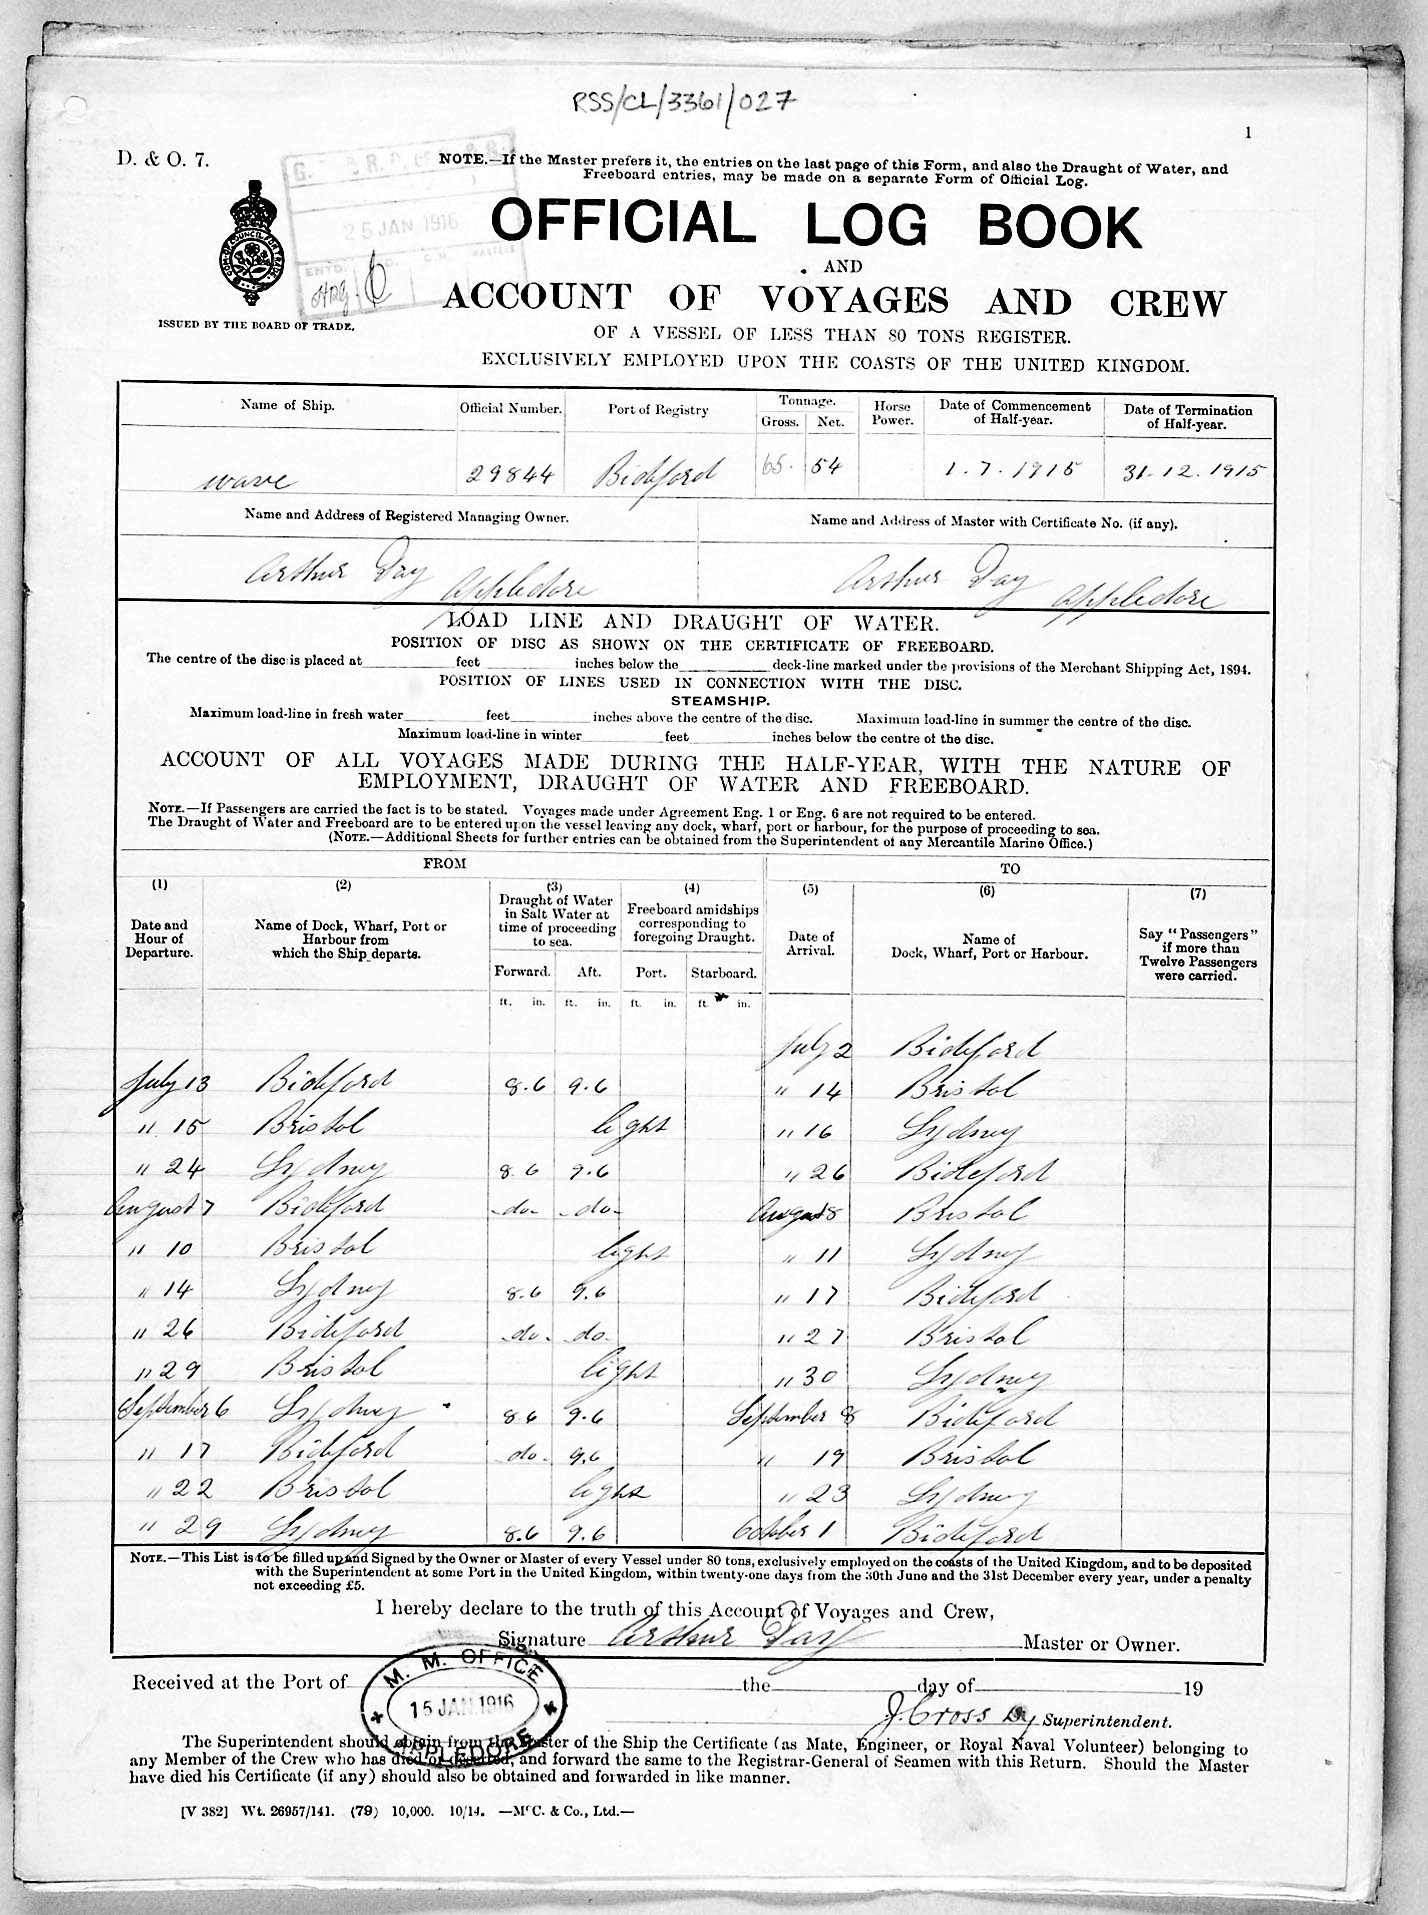 RSS/CL/3361/027
1
D. & O. 7.
NOTE.—If the Master prefers it, the entries on the last page of this Form, and also the Draught of Water, and
Freeboard entries, may be made on a separate Form of Official Log.
25 JAN 1916
OFFICIAL LOG BOOK
AND
ACCOUNT OF VOYAGES AND CREW
ISSUED BY THE BOARD OF TRADE.
OF A VESSEL OF LESS THAN 80 TONS REGISTER.
EXCLUSIVELY EMPLOYED UPON THE COASTS OF THE UNITED KINGDOM.
Name of Ship. Official Number. Port of Registry Tonnage. Gross. Net. Horse Power. Date of Commencement of Half-year. Date of Termination of Half-year.
wave 29844 Bideford 65. 54 1.7.1915 31.12.1915
Name and Address of Registered Managing Owner. Name and Address of Master with Certificate No. (if any).
Arthur Day Appledore Arthur Day Appledore
LOAD LINE AND DRAUGHT OF WATER.
POSITION OF DISC AS SHOWN ON THE CERTIFICATE OF FREEBOARD.
The centre of the disc is placed at feet inches below the deck-line marked under the provisions of the Merchant Shipping Act, 1894.
POSITION OF LINES USED IN CONNECTION WITH THE DISC.
STEAMSHIP.
Maximum load-line in fresh water feet inches above the centre of the disc. Maximum load-line in summer the centre of the disc.
Maximum load-line in winter feet inches below the centre of the disc.
ACCOUNT OF ALL VOYAGES MADE DURING THE HALF-YEAR, WITH THE NATURE OF
EMPLOYMENT, DRAUGHT OF WATER AND FREEBOARD.
NOTE.—If Passengers are carried the fact is to be stated. Voyages made under Agreement Eng. 1 or Eng. 6 are not required to be entered.
The Draught of Water and Freeboard are to be entered upon the vessel leaving any dock, wharf, port or harbour, for the purpose of proceeding to sea.
(NOTE.—Additional Sheets for further entries can be obtained from the Superintendent of any Mercantile Marine Office.)
FROM TO
(1) (2) (3) (4) (5) (6) (7)
Date and Hour of Departure. Name of Dock, Wharf, Port or Harbour from which the Ship departs. Draught of Water in Salt Water at time of proceeding to sea. Freeboard amidships corresponding to foregoing Draught. Date of Arrival. Name of Dock, Wharf, Port or Harbour. Say "Passengers" if more than Twelve Passengers were carried.
Forward. Aft. Port. Starboard.
ft. in. ft. in. ft. in. ft. in.
July 2 Bideford
July 13 Bideford 8.6 9.6 " 14 Bristol
" 15 Bristol light " 16 Lydney
" 24 Lydney 8.6 9.6 " 26 Bideford
August 7 Bideford -do- -do- August 8 Bristol
" 10 Bristol light " 11 Lydney
" 14 Lydney 8.6 9.6 " 17 Bideford
" 26 Bideford do. do. " 27 Bristol
" 29 Bristol light " 30 Lydney
September 6 Lydney 8.6 9.6 September 8 Bideford
" 17 Bideford do. 9.6 " 19 Bristol
" 22 Bristol light " 23 Lydney
" 29 Lydney 8.6 9.6 October 1 Bideford
NOTE.—This List is to be filled up and Signed by the Owner or Master of every Vessel under 80 tons, exclusively employed on the coasts of the United Kingdom, and to be deposited
with the Superintendent at some Port in the United Kingdom, within twenty-one days from the 30th June and the 31st December every year, under a penalty
not exceeding £5.
I hereby declare to the truth of this Account of Voyages and Crew,
Signature Arthur Day Master or Owner.
Received at the Port of the day of 19
M. M. OFFICE
15 JAN 1916
APPLEDORE
J. Cross Dy Superintendent.
The Superintendent should obtain from the Master of the Ship the Certificate (as Mate, Engineer, or Royal Naval Volunteer) belonging to
any Member of the Crew who has died or deserted, and forward the same to the Registrar-General of Seamen with this Return. Should the Master
have died his Certificate (if any) should also be obtained and forwarded in like manner.
[V 382] Wt. 26957/141. (79) 10,000. 10/14. —McC. & Co., Ltd.—